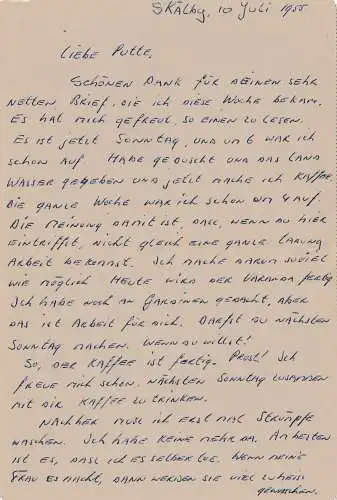 Skälby, 10 Juli 1955
Liebe Putte,
Schönen Dank für deinen sehr
netten Brief, die ich diese Woche bekam.
Es hat mich gefreut so einen zu lesen.
Es ist jetzt Sonntag, und um 6 war ich
schon auf. Habe geduscht und das Land
Wasser gegeben und jetzt mache ich Kaffee.
Die ganze Woche war ich schon um 4 auf.
Die Meinung damit ist, dass, wenn du hier
eintriffst, nicht gleich eine ganze Ladung
Arbeit bekommst. Ich mache darum soviel
wie möglich. Heute wird der Varanda fertig
Ich habe noch an Gardinen gedacht, aber
das ist Arbeit für dich. Darfst du nächsten
Sonntag machen. Wenn du willst!
So, der Kaffee ist fertig. Prost! Ich
freue mich schon, nächsten Sonntag zusammen
mit dir Kaffee zu trinken.
Nachher muss ich erst mal Strümpfe
waschen. Ich habe keine mehr da. Am besten
ist es, dass ich es selber tue. Wenn meine
Frau es macht, dann werden sie viel zu heiss
gewaschen.